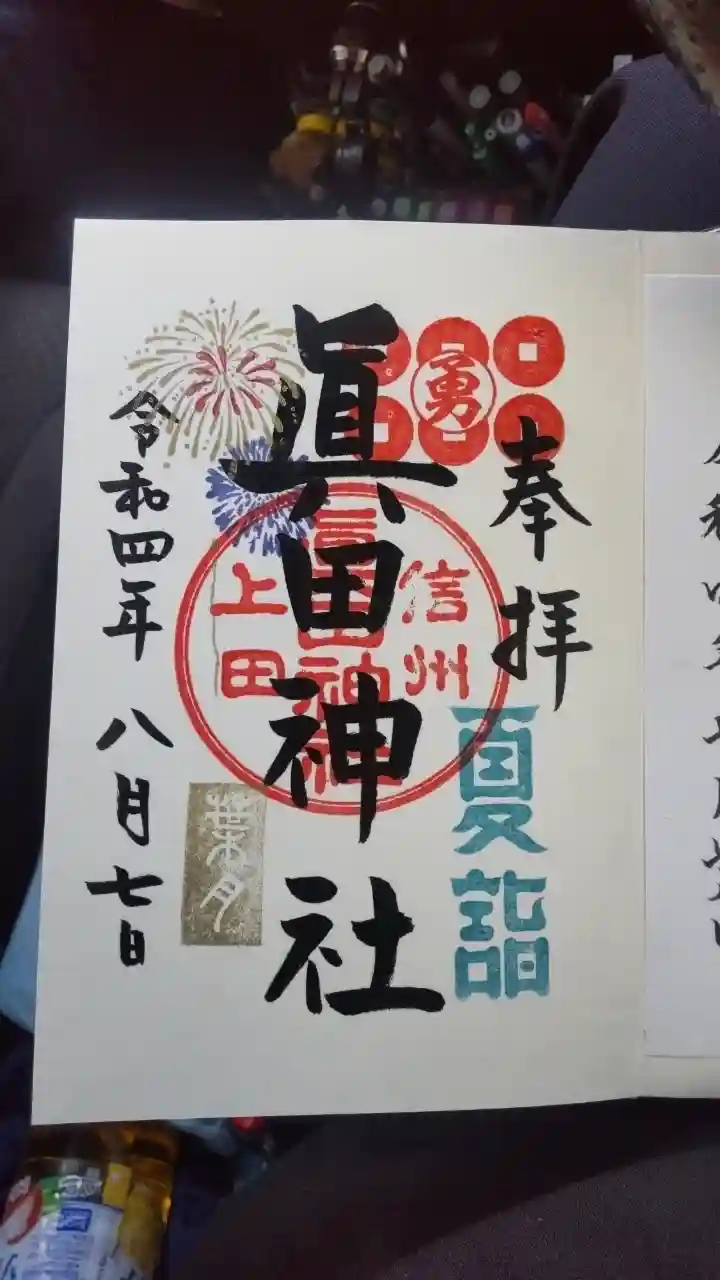 奉拝
夏詣
勇
眞田神社
信州
眞田神社
上田
葉月
令和四年 八月七日